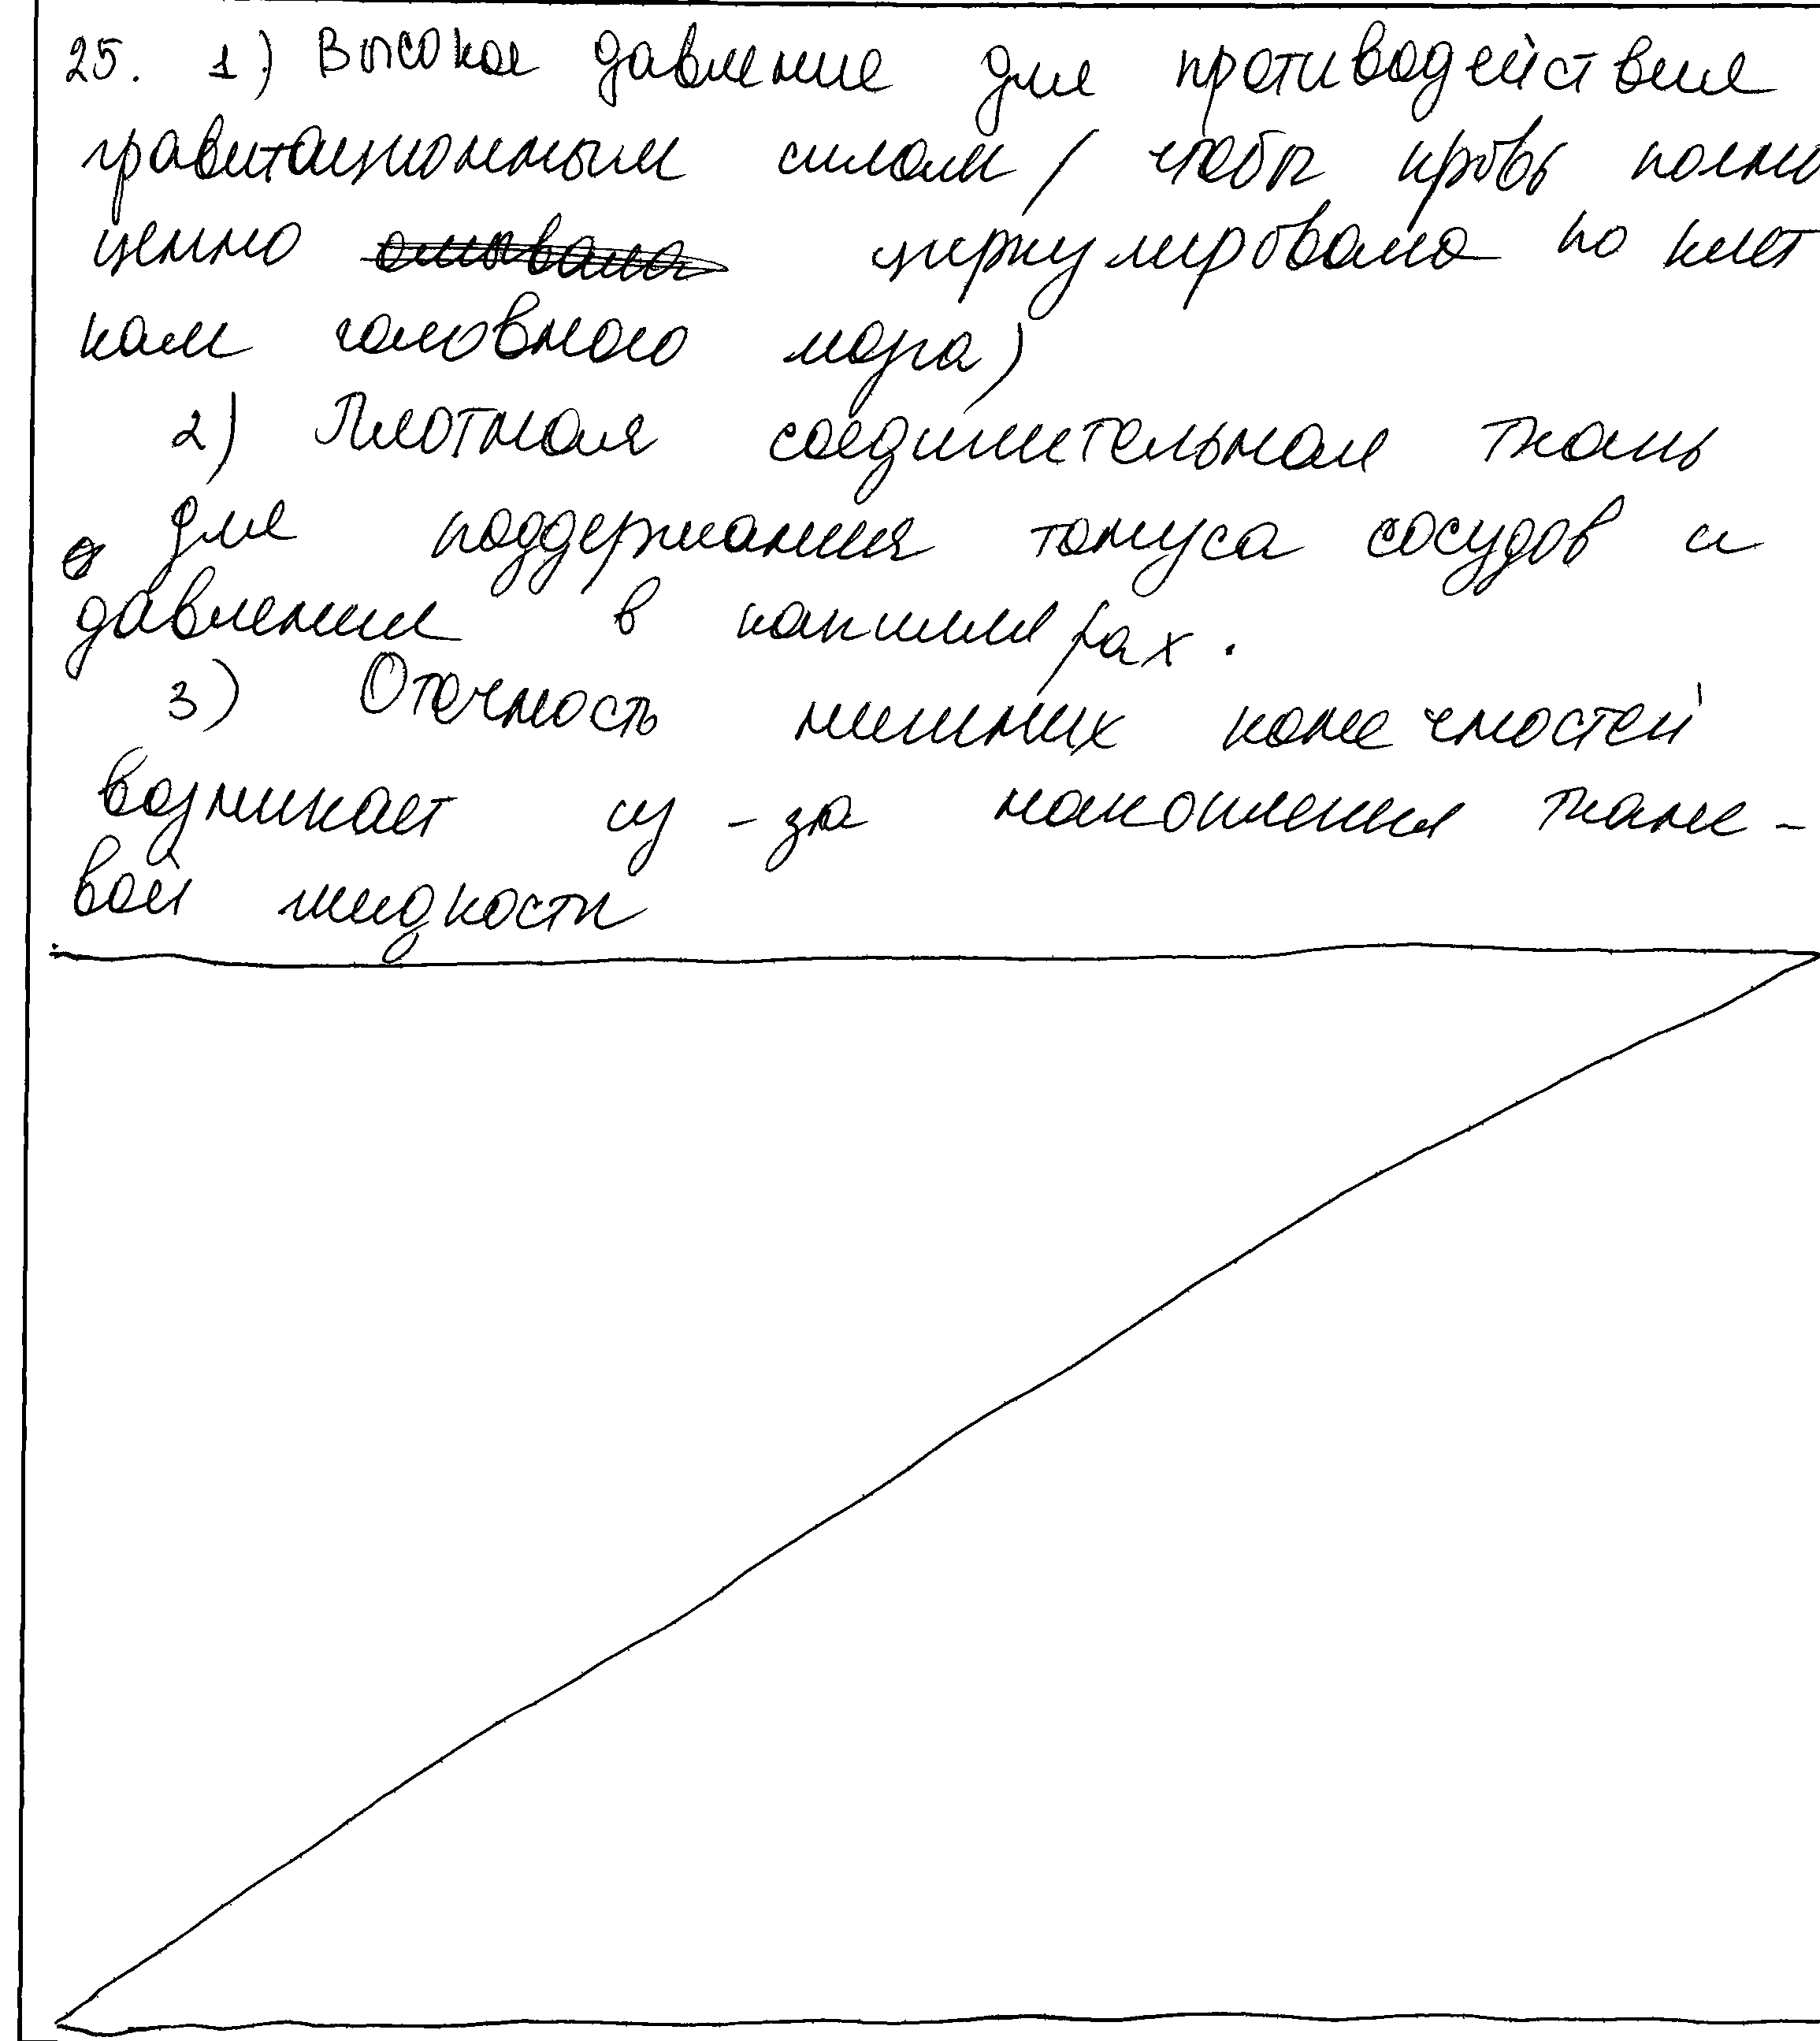 25. 1) Высокое давление для противодействия
гравитационным силам (чтобы кровь полно
ценно циркулировала по клет
кам головного мозга)
2) Плотная соединительная ткань
для поддержания тонуса сосудов и
давления в капиллярах.
3) Отечность нижних конечностей
возникает из-за накопления ткане-
вой жидкости